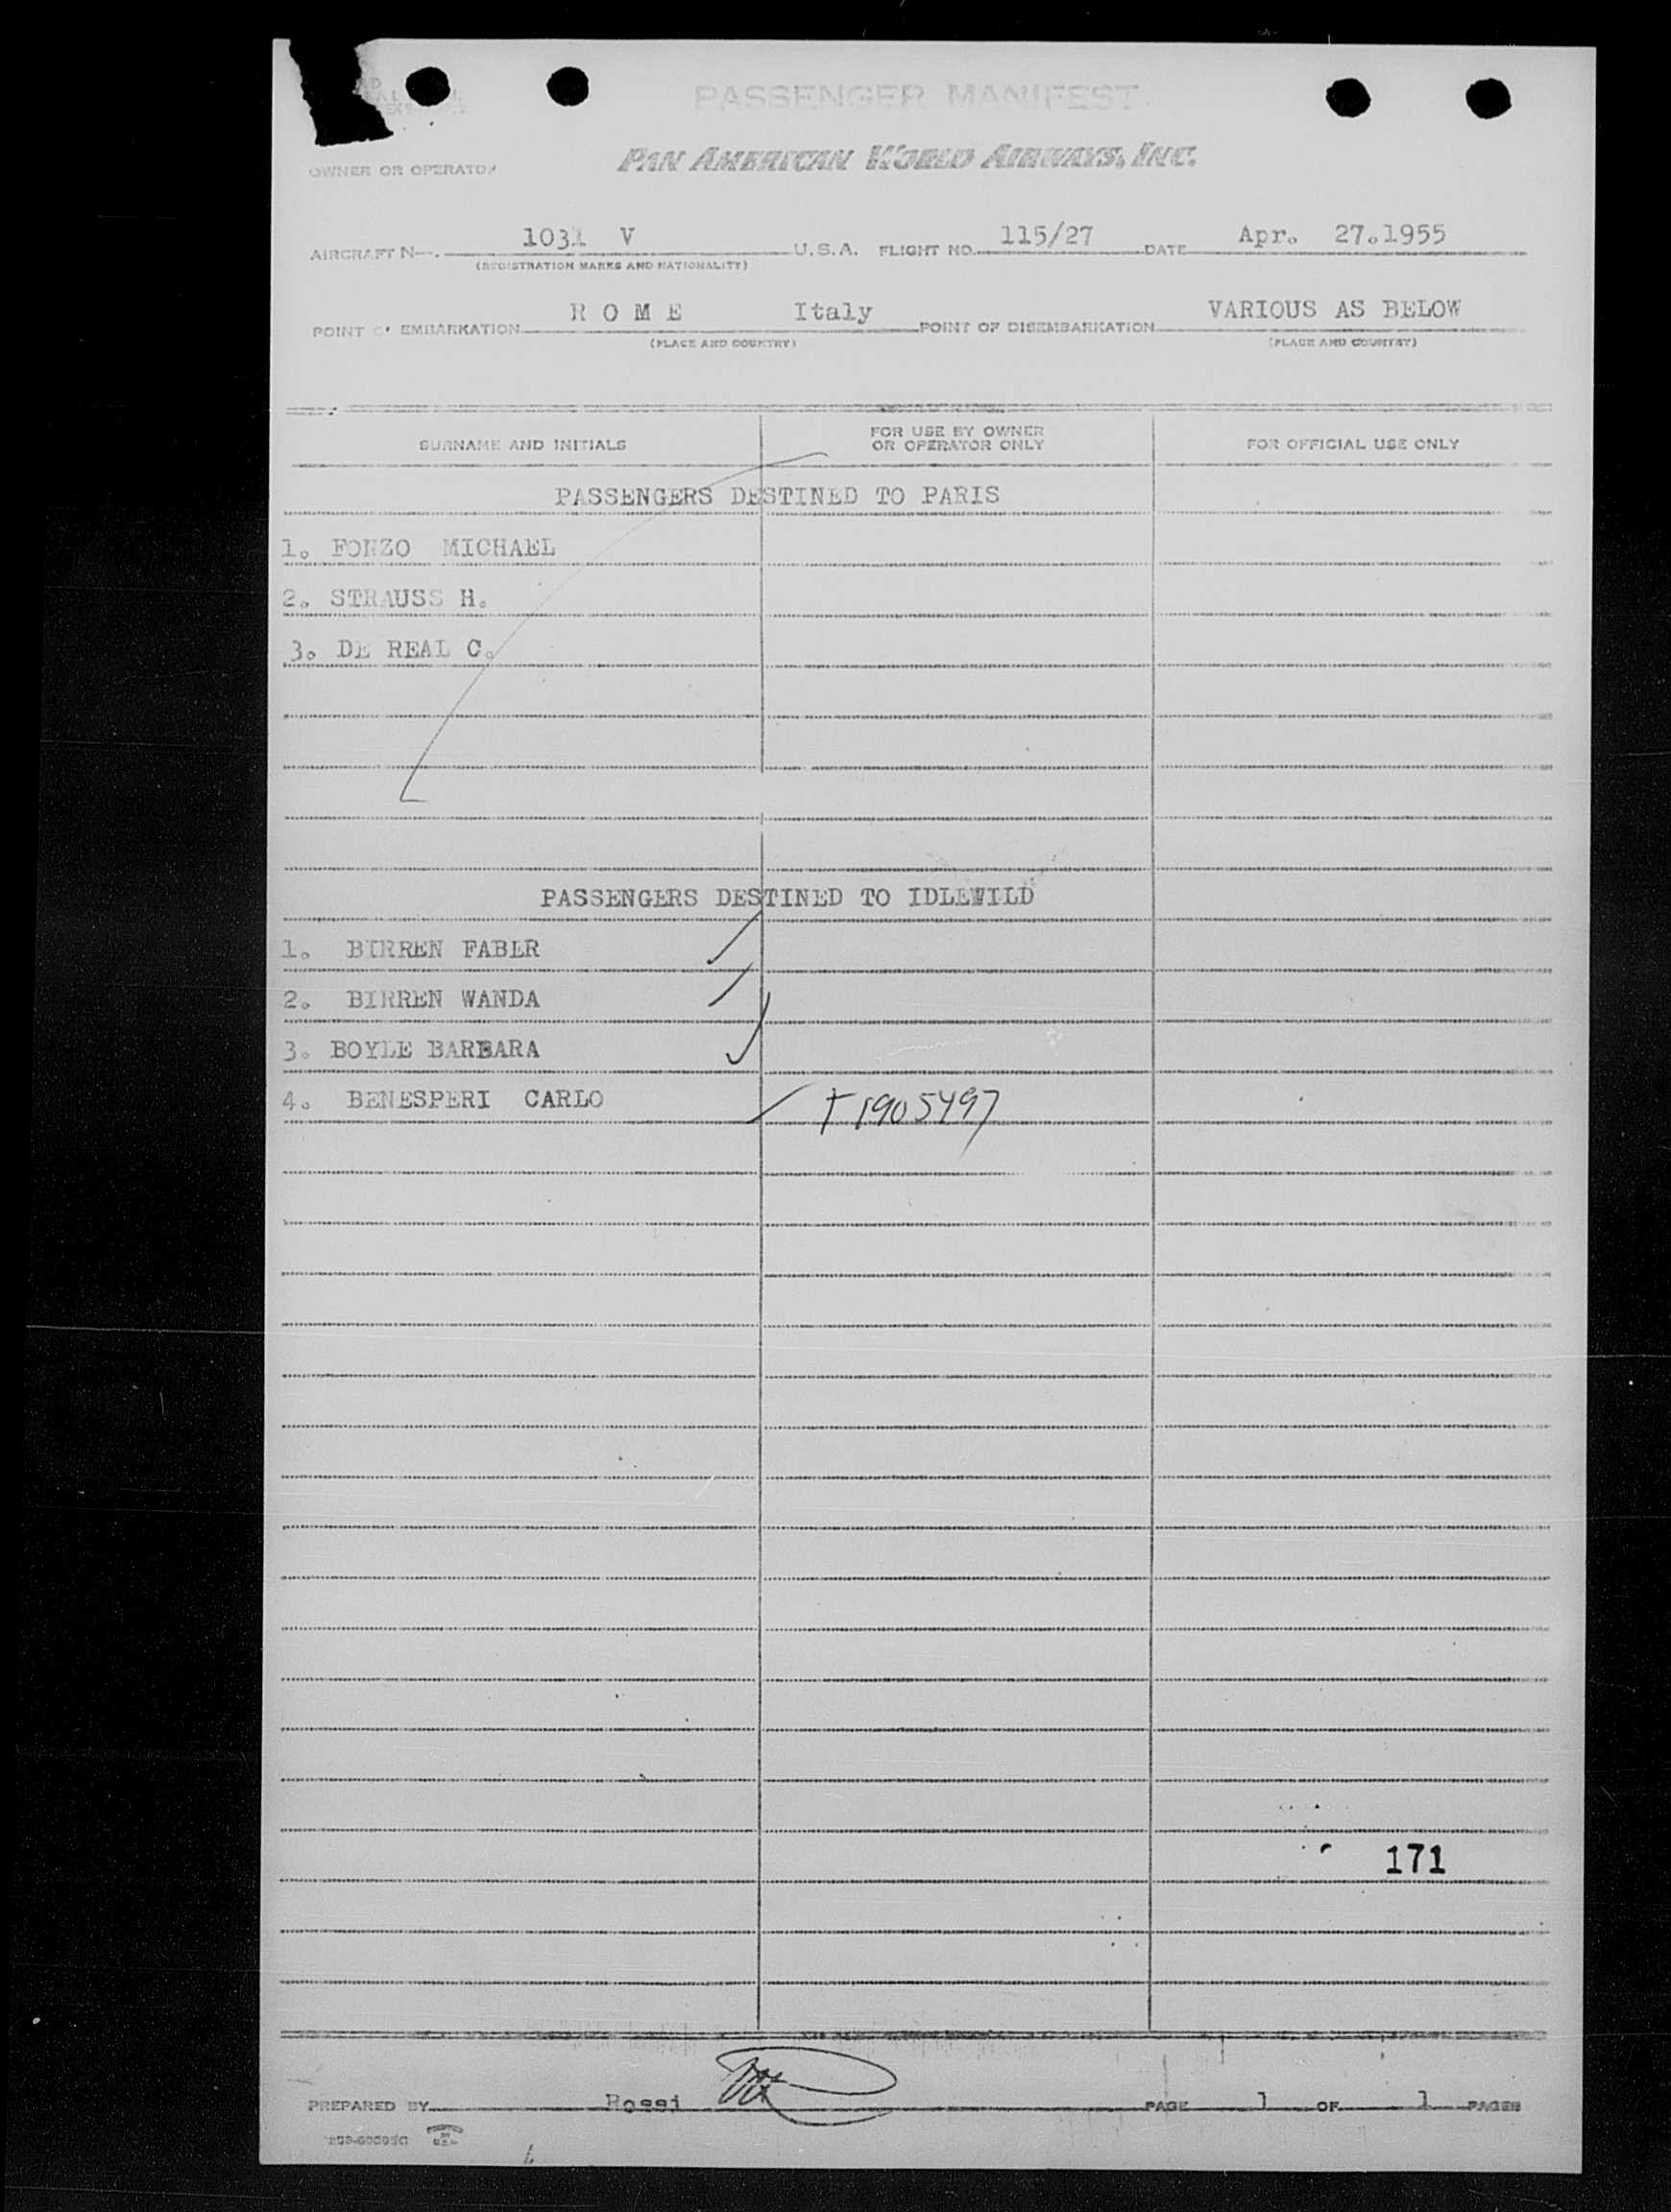 PASSENGER MANIFEST
OWNER OR OPERATOR PAN AMERICAN WORLD AIRWAYS, INC.
AIRCRAFT N 1031 V U.S.A. FLIGHT NO. 115/27 DATE Apr. 27.1955
(REGISTRATION MARKS AND NATIONALITY)
POINT OF EMBARKATION R O M E Italy POINT OF DISEMBARKATION VARIOUS AS BELOW
(PLACE AND COUNTRY) (PLACE AND COUNTRY)
SURNAME AND INITIALS FOR USE BY OWNER OR OPERATOR ONLY FOR OFFICIAL USE ONLY
PASSENGERS DESTINED TO PARIS
1. FONZO MICHAEL
2. STRAUSS H.
3. DE REAL C.
PASSENGERS DESTINED TO IDLEWILD
1. BIRREN FABER
2. BIRREN WANDA
3. BOYLE BARBARA
4. BENESPERI CARLO T 1905497
171
PREPARED BY Rossi PAGE 1 OF 1 PAGES